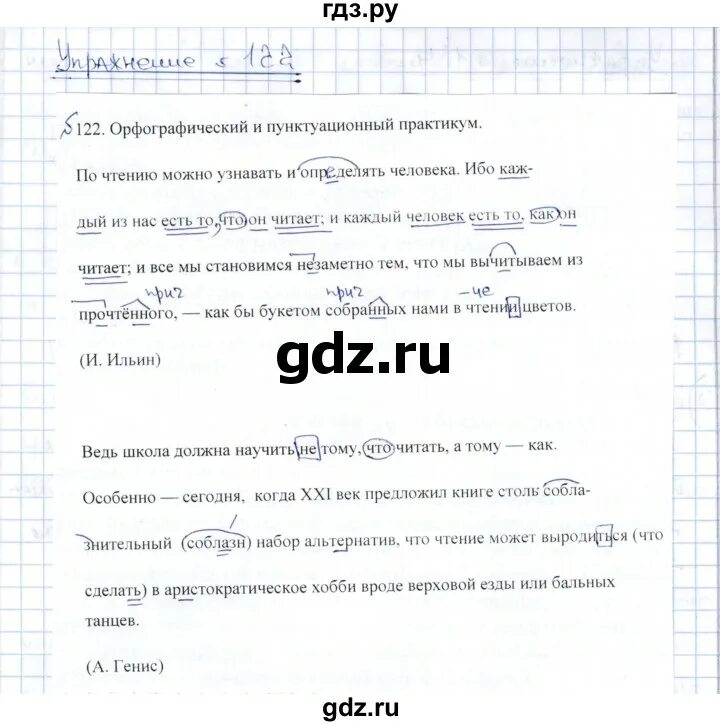 гдз.ру
Упражнение № 122
122. Орфографический и пунктуационный практикум.
По чтению можно узнавать и определять человека. Ибо каж-
дый из нас есть то, что он читает; и каждый человек есть то, как он
читает; и все мы становимся незаметно тем, что мы вычитываем из
прич прич -ие
прочтённого, — как бы букетом собранных нами в чтении цветов.
(И. Ильин)
gdz.ru
Ведь школа должна научить не тому, что читать, а тому — как.
Особенно — сегодня, когда XXI век предложил книге столь собла-
знительный (соблазн) набор альтернатив, что чтение может выродиться (что
сделать) в аристократическое хобби вроде верховой езды или бальных
танцев.
(А. Генис)
gdz.ru